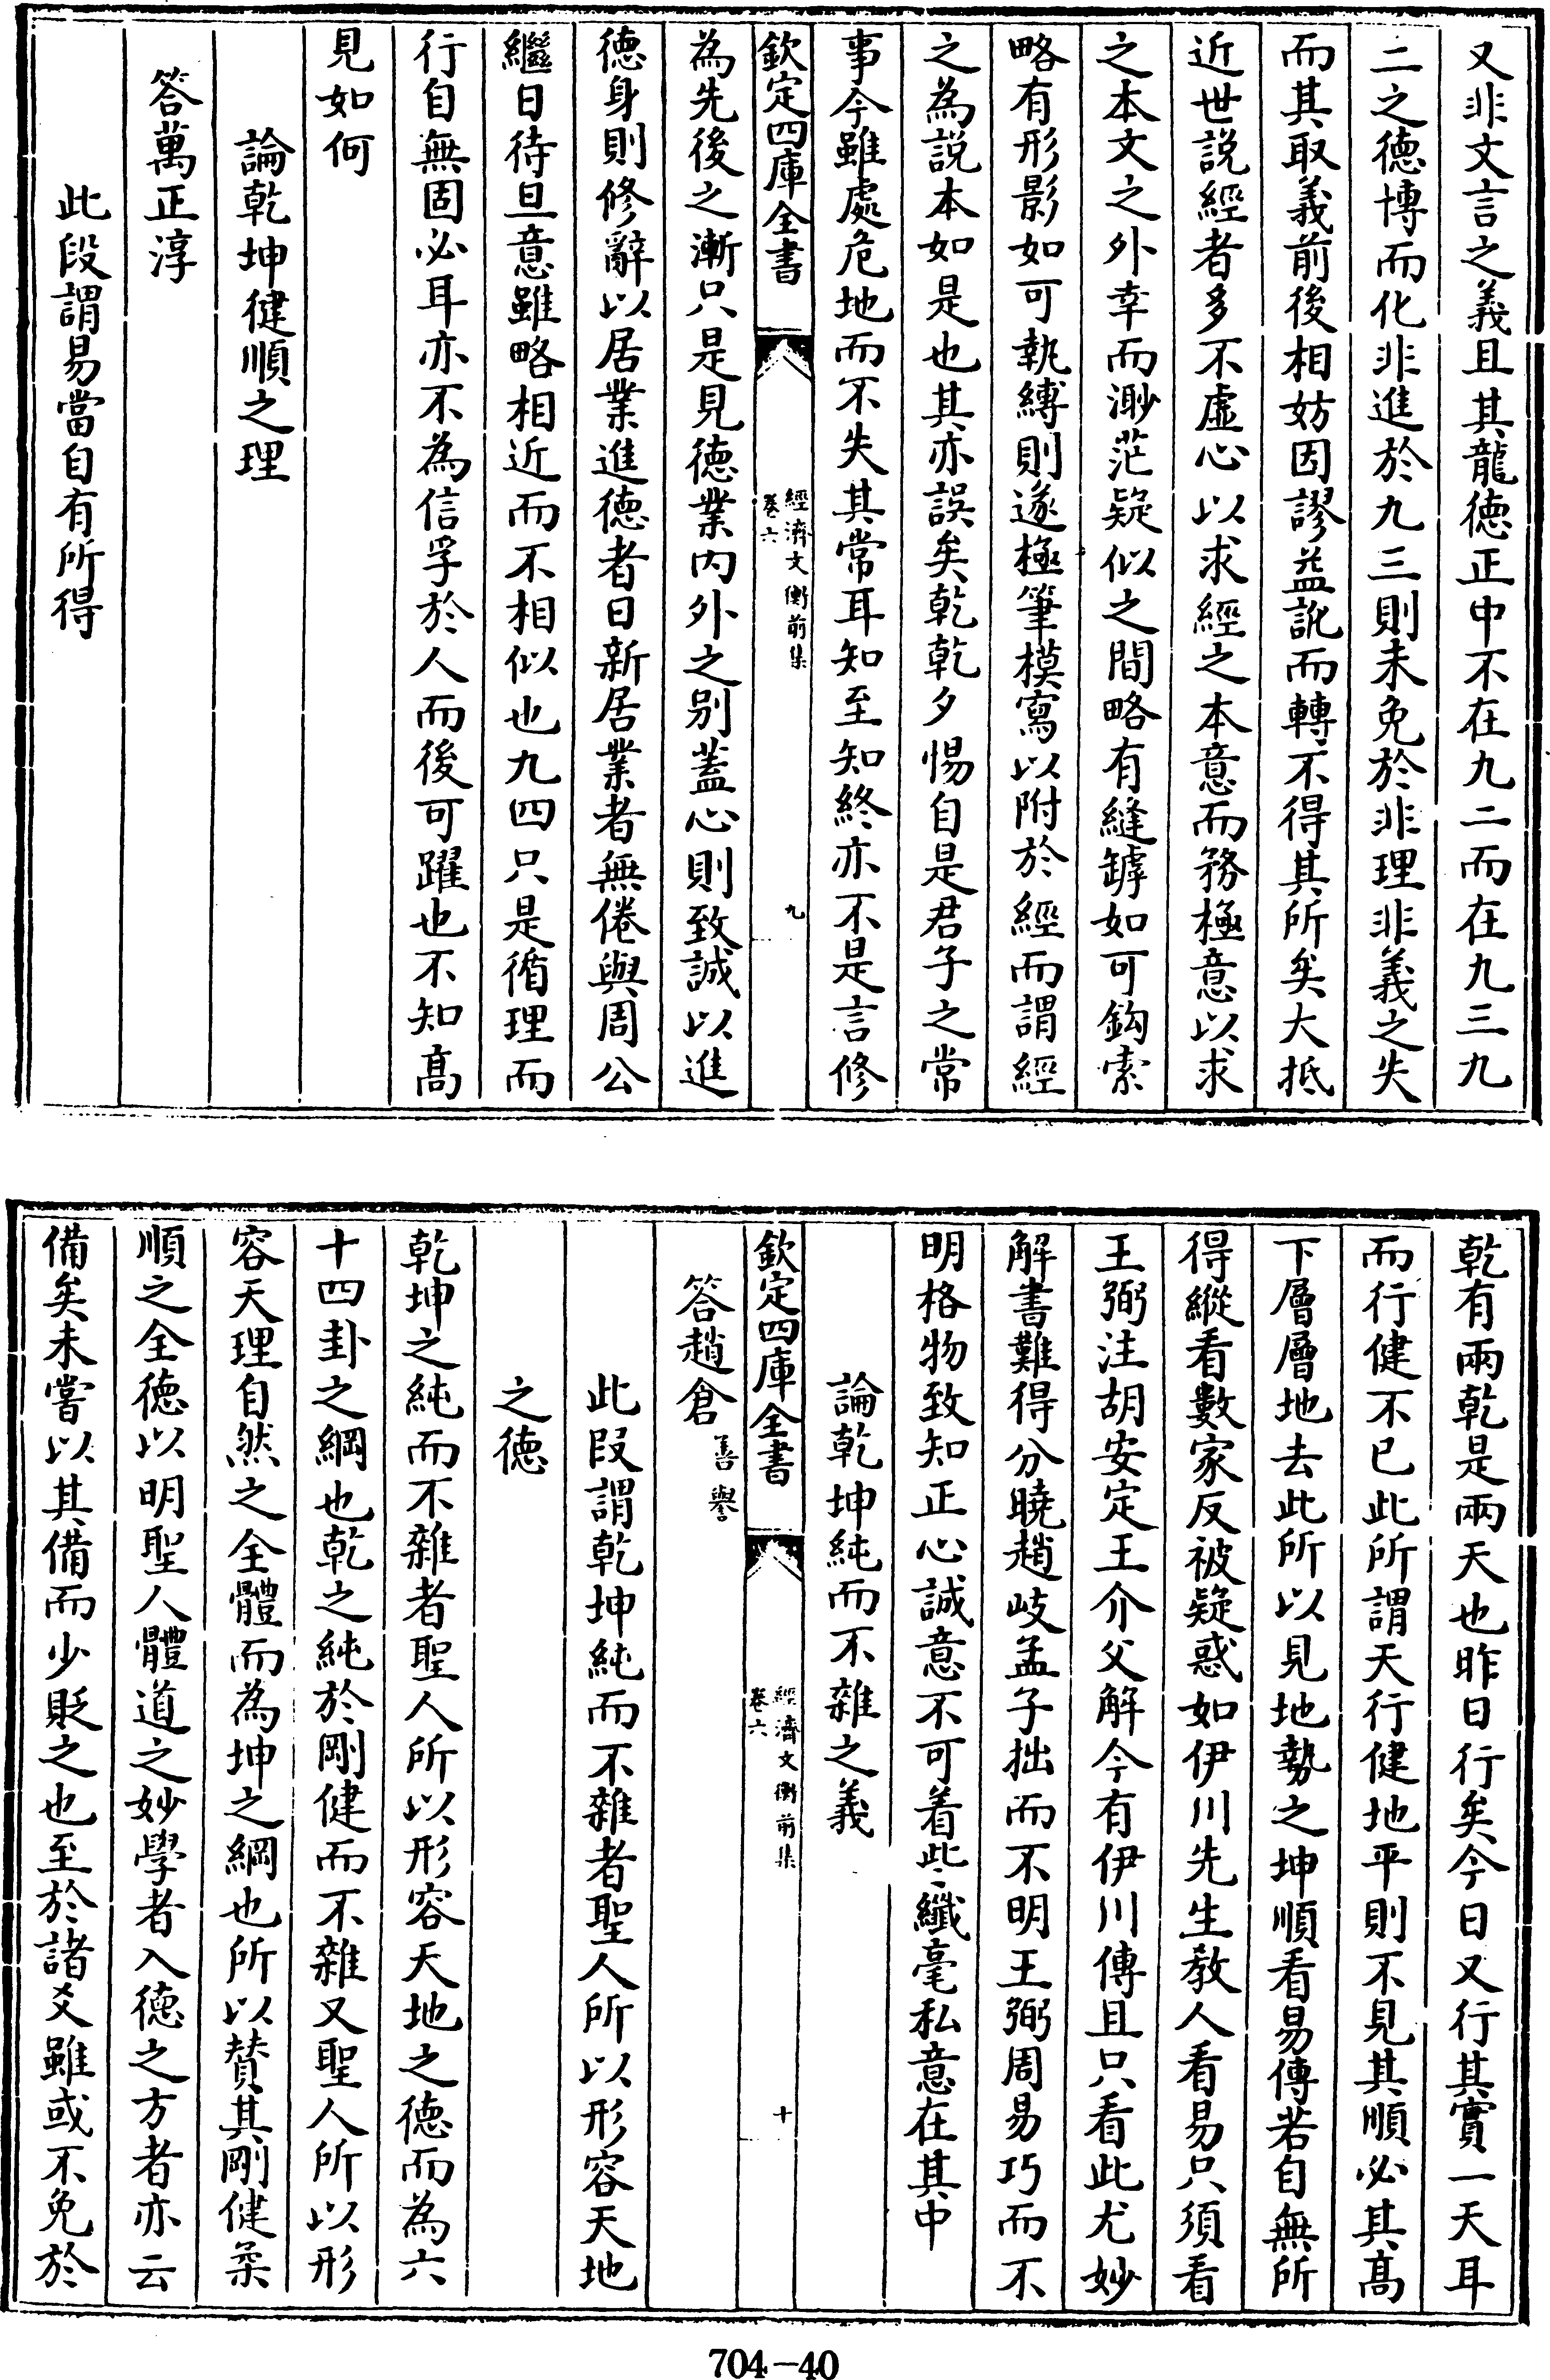 又非文言之義且其龍德正中不在九二而在九三九
二之德博而化非進於九三則未免於非理非義之失
而其取義前後相妨因謬益訛而轉不得其所矣大抵
近世說經者多不虛心以求經之本意而務極意以求
之本文之外幸而渺茫疑似之間略有縫罅如可鈎索
略有形影如可執縛則遂極筆模寫以附於經而謂經
之為說本如是也其亦誤矣乾乾夕惕自是君子之常
事今雖處危地而不失其常耳知至知終亦不是言修
欽定四庫全書
經濟文衡前集
卷六
九
為先後之漸只是見德業內外之別蓋心則致誠以進
德身則修辭以居業進德者日新居業者無倦與周公
繼日待旦意雖略相近而不相似也九四只是循理而
行自無固必耳亦不為信孚於人而後可躍也不知高
見如何
論乾坤健順之理
答萬正淳
此段謂易當自有所得
乾有兩乾是兩天也昨日行矣今日又行其實一天耳
而行健不已此所謂天行健地平則不見其順必其高
下層層地去此所以見地勢之坤順看易傳若自無所
得縱看數家反被疑惑如伊川先生教人看易只須看
王弼注胡安定王介父解今有伊川傳且只看此尤妙
解書難得分曉趙岐孟子拙而不明王弼周易巧而不
明格物致知正心誠意不可着此纖毫私意在其中
論乾坤純而不雜之義
欽定四庫全書
經濟文衡前集
卷六
十
答趙倉善譽
此段謂乾坤純而不雜者聖人所以形容天地
之德
乾坤之純而不雜者聖人所以形容天地之德而為六
十四卦之綱也乾之純於剛健而不雜又聖人所以形
容天理自然之全體而為坤之綱也所以贊其剛健柔
順之全德以明聖人體道之妙學者入德之方者亦云
備矣未嘗以其備而少貶之也至於諸爻雖或不免於
704-40